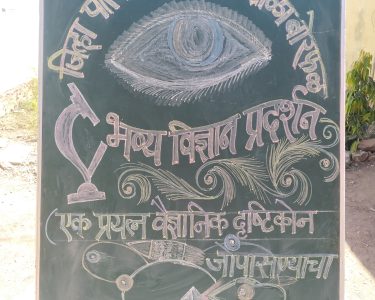 जिल्हा
भव्य विज्ञान प्रदर्शन
एक प्रयत्न वैज्ञानिक दृष्टिकोन
जोपासण्याचा